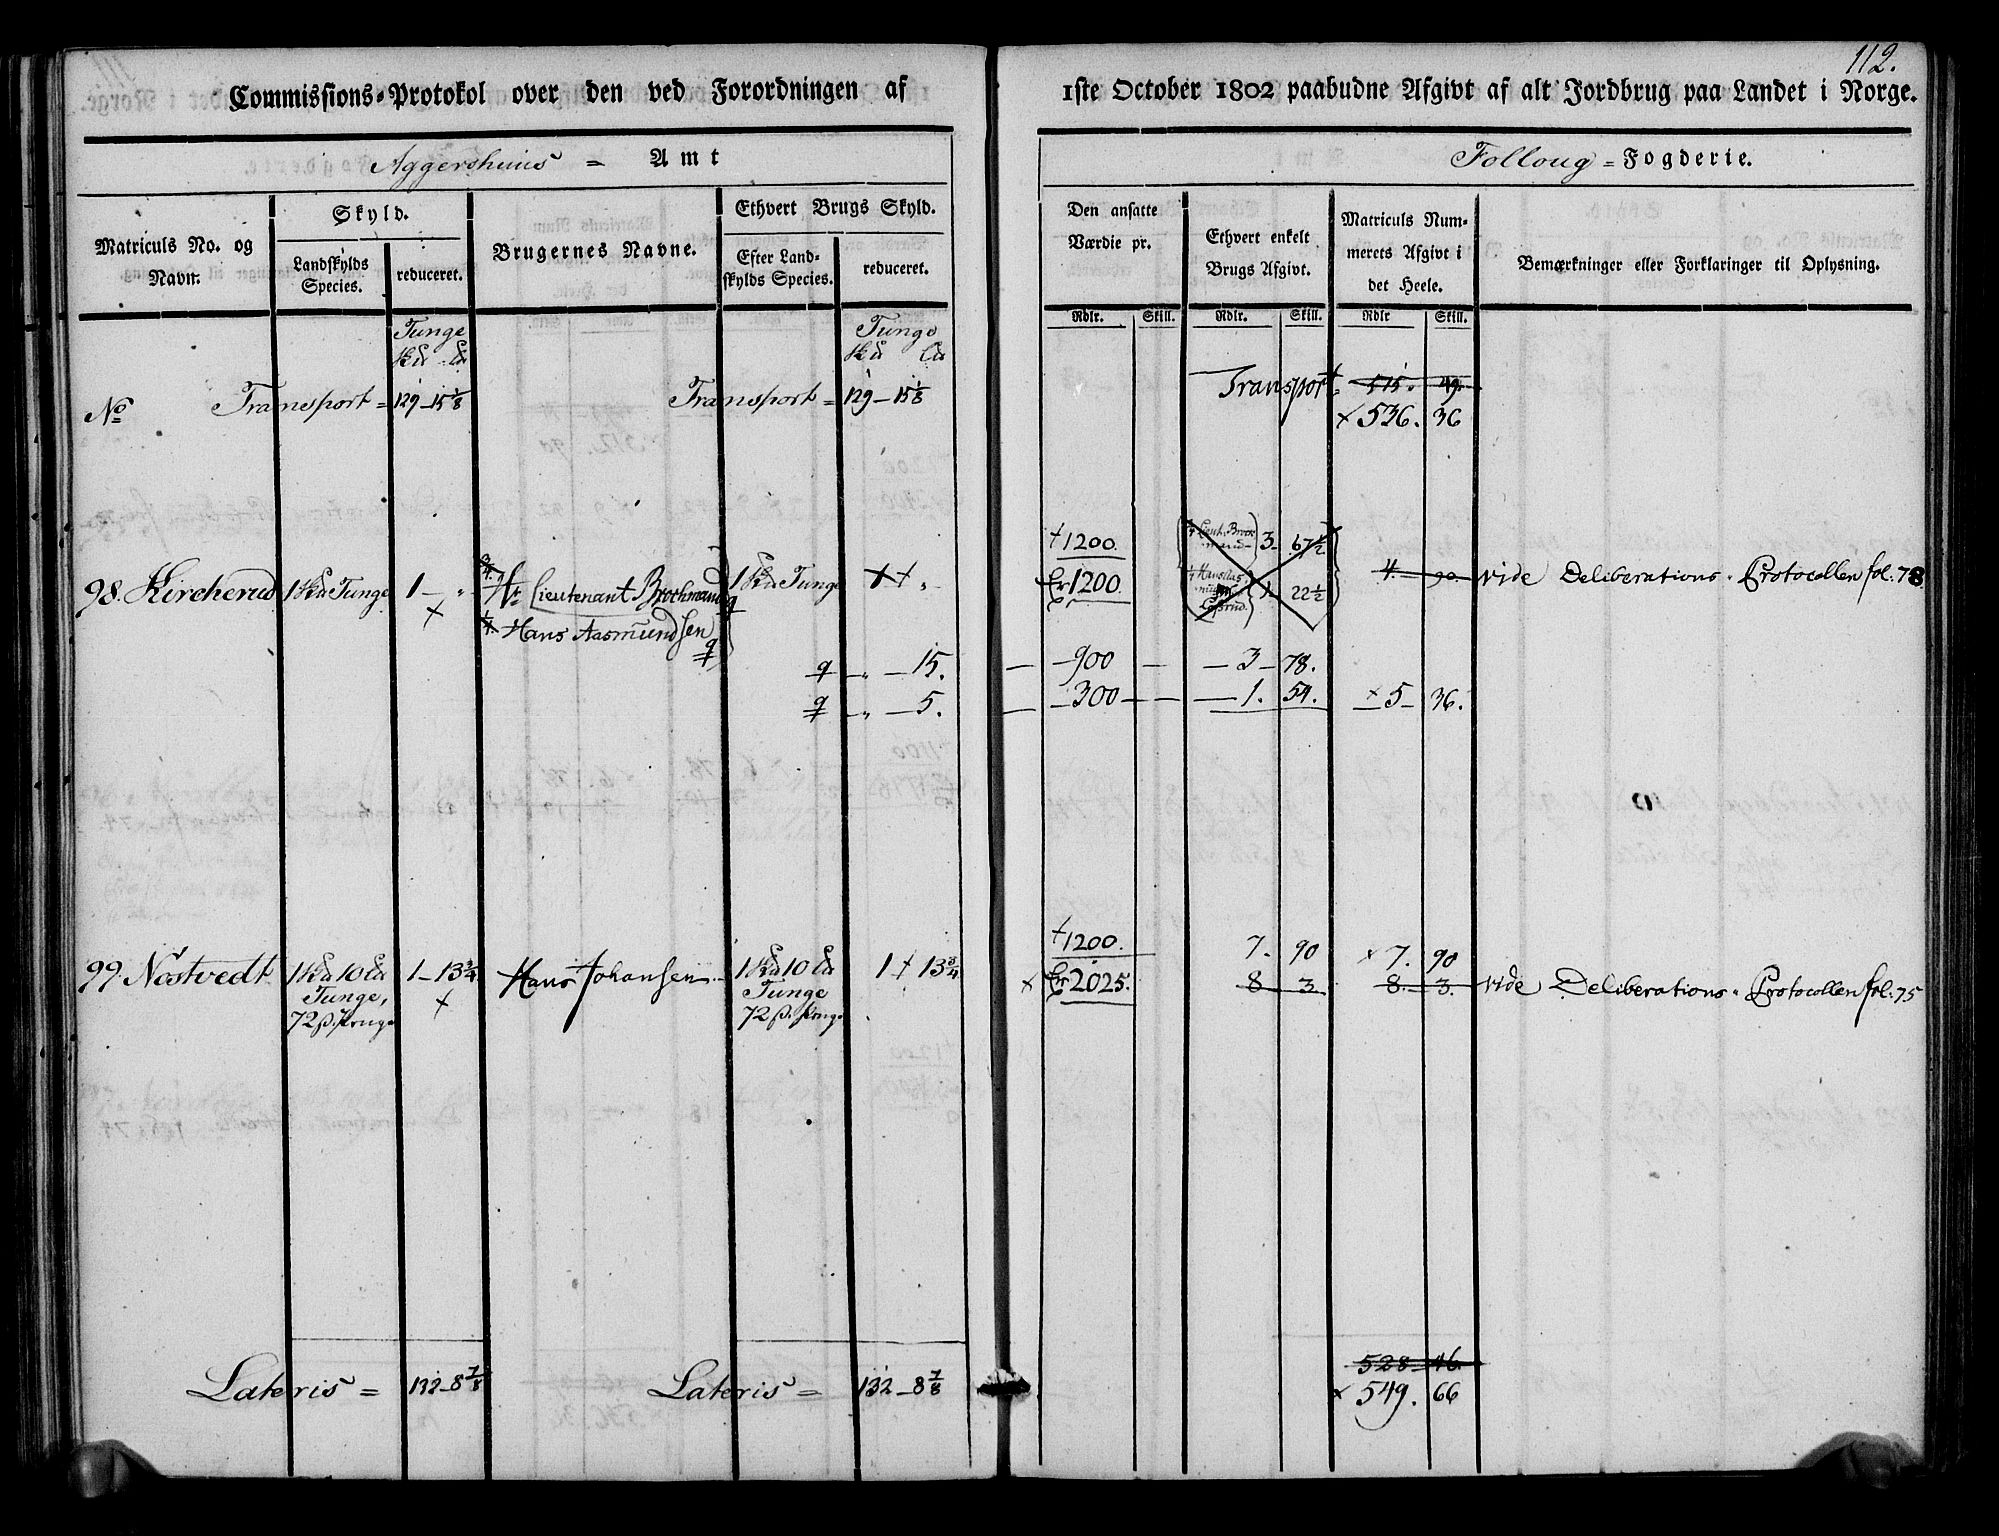 112.
Commissions-Protokol over den ved Forordningen af 1ste October 1802 paabudne Afgivt af alt Jordbrug paa Landet i Norge.
Aggershuus = Amt
Folloug = Fogderie.
Matriculs No. og Navn.
Skyld.
Landskylds Species.
reduceret.
Brugernes Navne.
Ethvert Brugs Skyld.
Efter Landskylds Species.
reduceret.
Den ansatte Værdie pr.
Ethvert enkelt Brugs Afgivt.
Matriculs Nummerets Afgivt i det Heele.
Bemærkninger eller Forklaringer til Oplysning.
Rdlr. Skill. Rdlr. Skill. Rdlr Skill.
Tunge Tunge
No Transport = 129 - 15 1/8 Transport = 129 - 15 1/8 Transport = 515. 49.
× 536. 36
+ 1200. 3 - 67 1/2
98. Kircherud 1 Tunge 1 - „ - 3/4 Hr Lieutenant Brochmand 1 Tunge 1 + „ - 1200. 1. 22 1/2 4. - 90. vide Deliberations-Protocollen fol. 78
× 1/4 Hans Aasmundsen
„ - 15. - 900 - 3 - 78.
„ - 5. - 300 - 1. 54. × 5 - 36.
+ 1200. 7. 90 × 7. 90
99. Nøstvedt 1 10 1 - 13 3/4 Hans Johansen 1 10 1 + 13 3/4 × 2025. 8 3 8. - 3. vide Deliberations-Protocollen fol. 75
Tunge, × Tunge
72 ß. 72 ß.
528 - 46.
Lateris = 132 - 8 7/8 Lateris = 132 - 8 7/8 × 549. 66